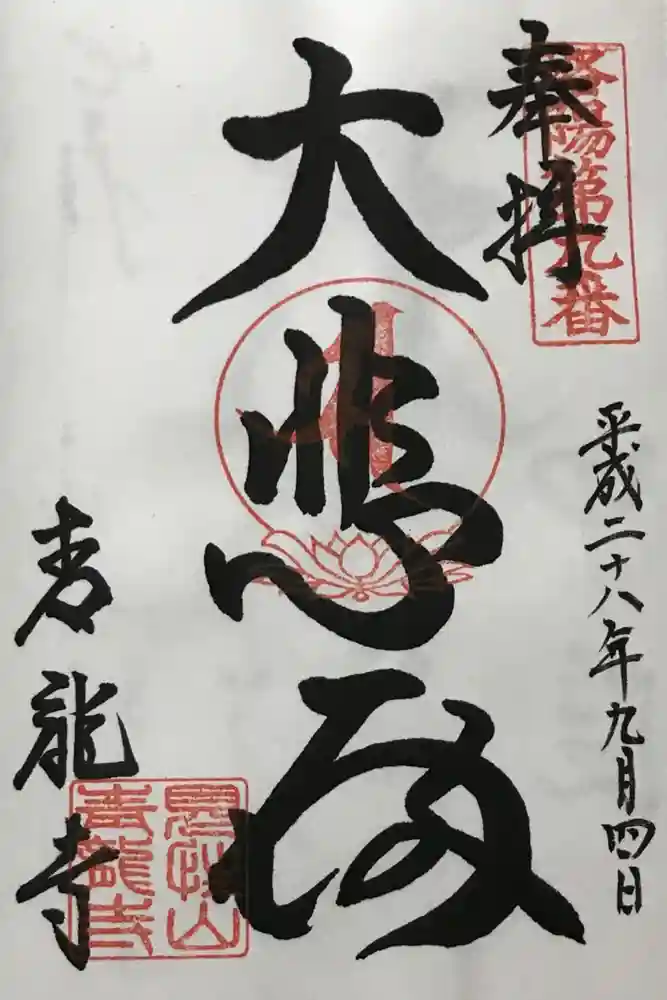 奉拝
洛陽第九番
平成二十八年九月四日
大悲殿
青龍寺
見性山
青龍寺